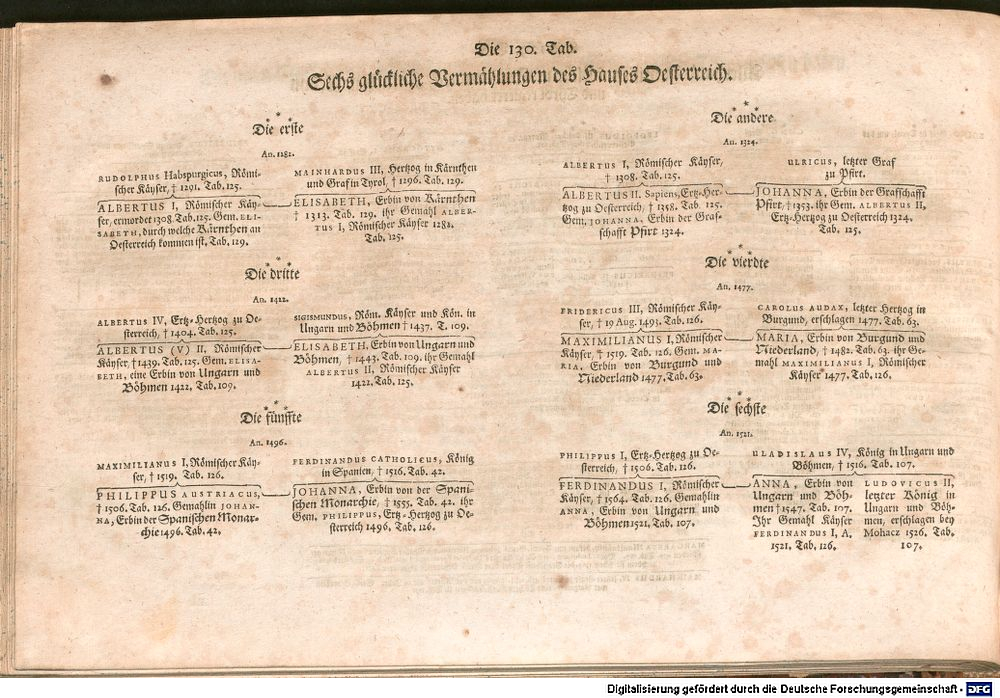 Die 130. Tab.
Sechs glückliche Vermählungen des Hauses Oesterreich.
Die erste
An. 1282.
RUDOLPHUS Habspurgicus, Römi-
scher Käyser, † 1291. Tab. 125.
ALBERTUS I, Römischer Käy-
ser, ermordet 1308. Tab. 125. Gem. ELI-
SABETH, durch welche Kärnthen an
Oesterreich kommen ist, Tab. 129.
MAINHARDUS III, Hertzog in Kärnthen
und Graf in Tyrol, † 1296. Tab. 129.
ELISABETH, Erbin von Kärnthen
† 1313. Tab. 129. ihr Gemahl ALBER-
TUS I, Römischer Käyser 1282.
Tab. 125.
Die andere
An. 1324.
ALBERTUS I, Römischer Käyser,
† 1308. Tab. 125.
ALBERTUS II. Sapiens, Ertz-Her-
tzog zu Oesterreich, † 1358. Tab. 125.
Gem. JOHANNA, Erbin der Graf-
schafft Pfirt 1324.
ULRICUS, letzter Graf
zu Pfirt.
JOHANNA, Erbin der Grafschafft
Pfirt, † 1353. ihr Gem. ALBERTUS II,
Ertz-Hertzog zu Oesterreich 1324.
Tab. 125.
Die dritte
An. 1422.
ALBERTUS IV, Ertz-Hertzog zu Oe-
sterreich, † 1404. Tab. 125.
ALBERTUS (V) II. Römischer
Käyser, † 1439. Tab. 125. Gem. ELISA-
BETH, eine Erbin von Ungarn und
Böhmen 1422, Tab. 109.
SIGISMUNDUS, Röm. Käyser und Kön. in
Ungarn und Böhmen † 1437. T. 109.
ELISABETH, Erbin von Ungarn und
Böhmen, † 1443. Tab. 109. ihr Gemahl
ALBERTUS II, Römischer Käyser
1422. Tab. 125.
Die vierdte
An. 1477.
FRIDERICUS III, Römischer Käy-
ser, † 19 Aug. 1493. Tab. 126.
MAXIMILIANUS I, Römischer
Käyser, † 1519. Tab. 126. Gem. MA-
RIA, Erbin von Burgund und
Niederland 1477. Tab. 63.
CAROLUS AUDAX, letzter Hertzog in
Burgund, erschlagen 1477. Tab. 63.
MARIA, Erbin von Burgund und
Niederland, † 1482. Tab. 63. ihr Ge-
mahl MAXIMILIANUS I, Römischer
Käyser 1477. Tab. 126.
Die fünffte
An. 1496.
MAXIMILIANUS I, Römischer Käy-
ser, † 1519. Tab. 126.
PHILIPPUS AUSTRIACUS,
† 1506. Tab. 126. Gemahlin JOHAN-
NA, Erbin der Spanischen Monar-
chie 1496. Tab. 42.
FERDINANDUS CATHOLICUS, König
in Spanien, † 1516. Tab. 42.
JOHANNA, Erbin von der Spani-
schen Monarchie, † 1555. Tab. 42. ihr
Gem. PHILIPPUS, Ertz-Hertzog zu Oe-
sterreich 1496, Tab. 126.
Die sechste
An. 1521.
PHILIPPUS I, Ertz-Hertzog zu Oe-
sterreich, † 1506. Tab. 126.
FERDINANDUS I, Römischer
Käyser, † 1564. Tab. 126. Gemahlin
ANNA, Erbin von Ungarn und
Böhmen 1521, Tab. 107.
ULADISLAUS IV, König in Ungarn und
Böhmen, † 1516. Tab. 107.
ANNA, Erbin von
Ungarn und Böh-
men † 1547. Tab. 107.
Ihr Gemahl Käyser
FERDINANDUS I, A.
1521. Tab. 126.
LUDOVICUS II,
letzter König in
Ungarn und Böh-
men, erschlagen bey
Mohacz 1526. Tab.
107.
Digitalisierung gefördert durch die Deutsche Forschungsgemeinschaft - DFG